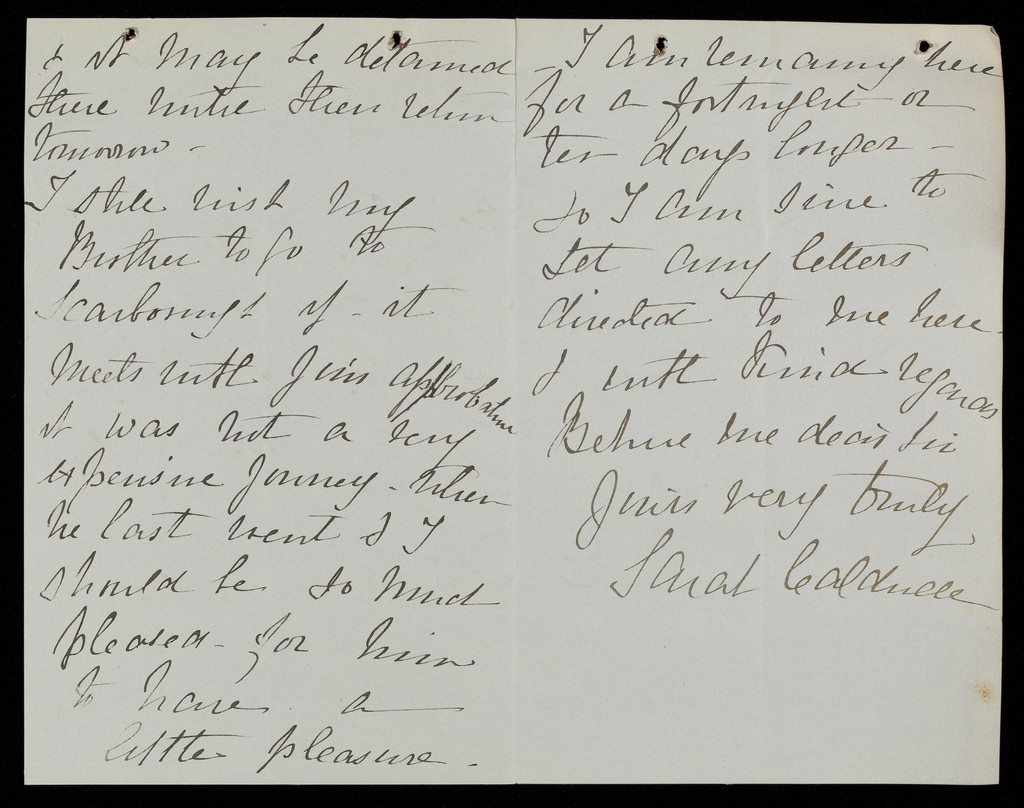 & it may be detained
there until their return
tomorrow -
I still wish my
Brother to go to
Scarborough if - it
meets with your approbation
it was not a very
expensive journey - when
he last went & I
should be so much
pleased - for him
to have a
little pleasure -
- I am remaining here
for a fortnight or
ten days longer -
so I am sure to
get any letters
directed to me here -
& with kind regards
Believe me dear Sir
Yours very truly
Sarah Caldwell